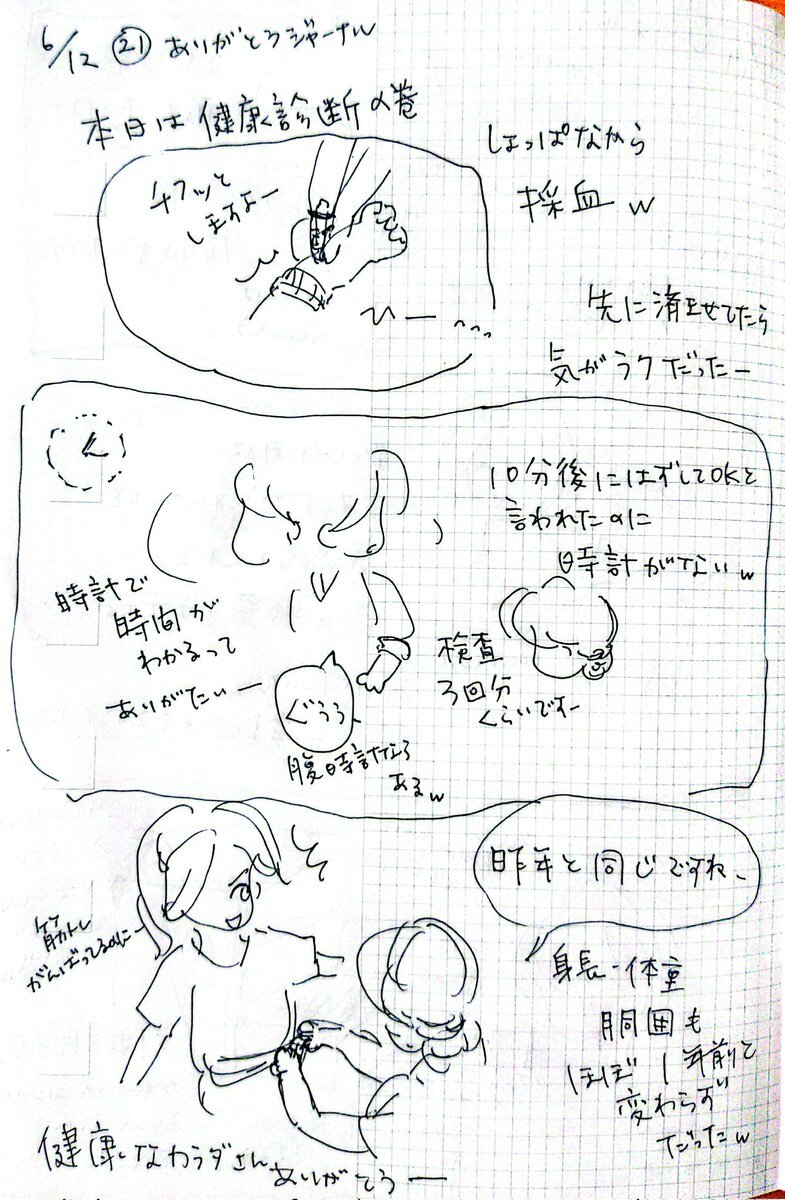 6/12 ㉑ ありがとうジャーナル
本日は健康診断の巻
チクッと
しますよー
ひー
しょっぱなから
採血w
先に済ませてたら
気がラクだったー
10分後にはずしてOKと
言われたのに
時計がないw
時計で
時間が
わかるって
ありがたいー
ぐぅぅ
腹時計なら
あるw
検査
3回分
くらいですー
昨年と同じですね、
筋トレ
がんばってるのにー
身長・体重
胴囲も
ほぼ1年前と
変わらず
だったw
健康なカラダさん
ありがとうー